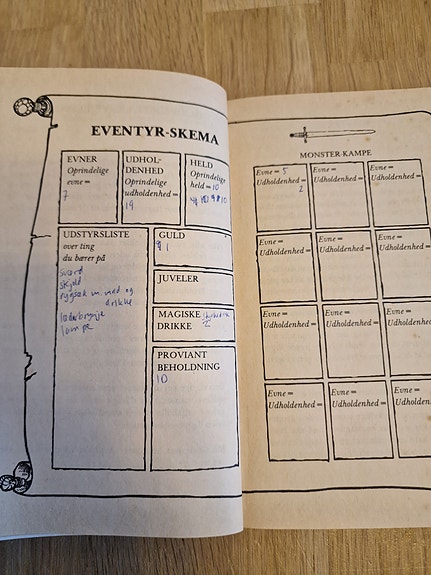 EVENTYR-SKEMA
EVNER
Oprindelige
evne =
7
UDHOL-
DENHED
Oprindelige
udholdenhed =
19
HELD
Oprindelige
held = 10
9 8 10
UDSTYRSLISTE
over ting
du bærer på
Sværd
skjold
rygsæk m. mad og
drikke
læderbrynje
lampe
GULD
1
JUVELER
MAGISKE
DRIKKE
2
PROVIANT
BEHOLDNING
10
MONSTER-KAMPE
Evne = 5
Udholdenhed =
2
Evne =
Udholdenhed =
Evne =
Udholdenhed =
Evne =
Udholdenhed =
Evne =
Udholdenhed =
Evne =
Udholdenhed =
Evne =
Udholdenhed =
Evne =
Udholdenhed =
Evne =
Udholdenhed =
Evne =
Udholdenhed =
Evne =
Udholdenhed =
Evne =
Udholden